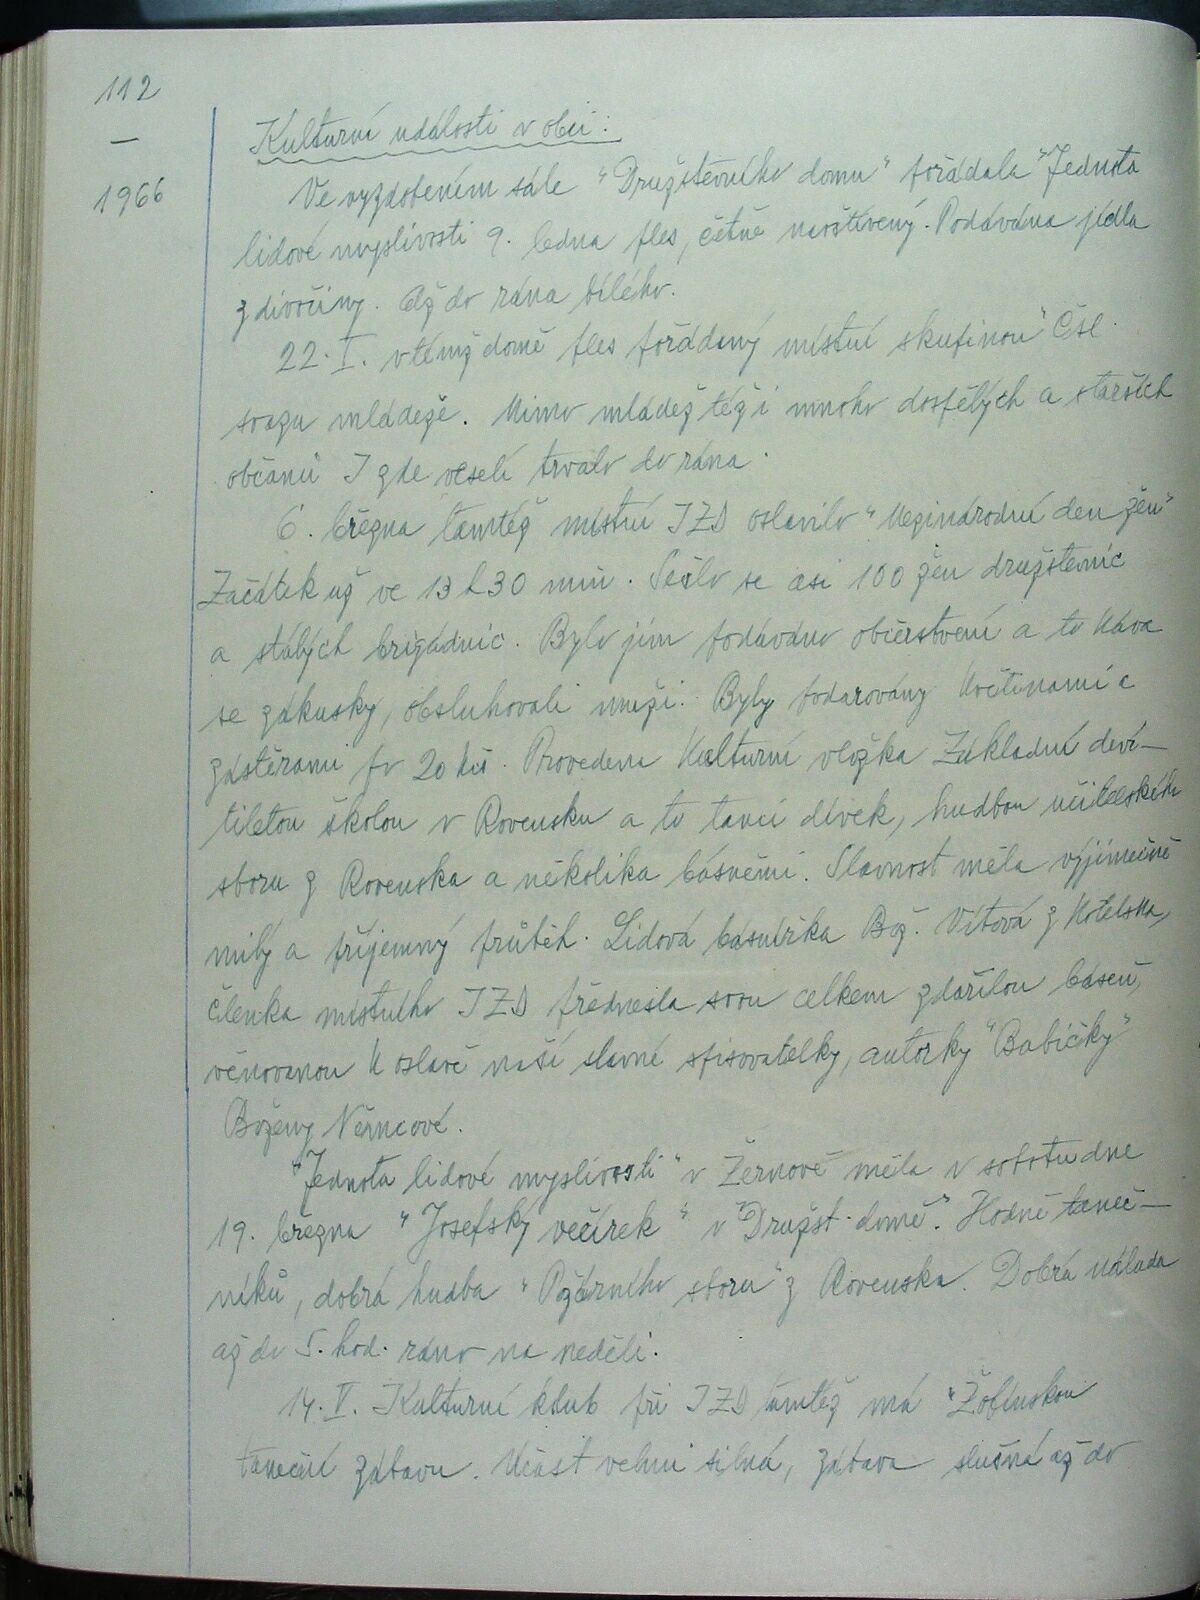 112
—
1966
Kulturní události v obci:
Ve vyzdobeném sále "Družstevního domu" pořádala "Jednota
lidové myslivosti 9. ledna ples, četně navštívený. Podávána jídla
z divočiny. Až do rána bílého.
22. I. v témž domě ples pořádaný místní skupinou "Čsl.
svazu mládeže. Mimo mládež též i mnoho dospělých a starších
občanů I zde veselí trvalo do rána.
6. března tamtéž místní JZD oslavilo "Mezinárodní den žen"
Začátek už ve 13 h 30 min. Sešlo se asi 100 žen družstevnic
a stálých brigádnic. Bylo jim podáváno občerstvení a to káva
se zákusky, obsluhovali muži. Byly podarovány květinami a
zástěrami po 20 Kčs. Provedena kulturní vložka Základní deví-
tiletou školou v Rovensku a to tanci dívek, hudbou učitelského
sboru z Rovenska a několika básněmi. Slavnost měla výjimečně
milý a příjemný průběh. Lidová básnířka Bož. Vítová z Kotelska,
členka místního JZD přednesla svou celkem zdařilou báseň,
věnovanou k oslavě naší slavné spisovatelky, autorky "Babičky"
Boženy Němcové.
"Jednota lidové myslivosti" v Žernově měla v sobotu dne
19. března "Josefský večírek" v "Družst. domě". Hodně taneč-
níků, dobrá hudba "Požárního sboru" z Rovenska. Dobrá nálada
až do 5. hod. ráno na neděli.
14. V. Kulturní klub při JZD tamtéž má "Žofinskou
taneční zábavu. Účast velmi silná, zábava slušná až do